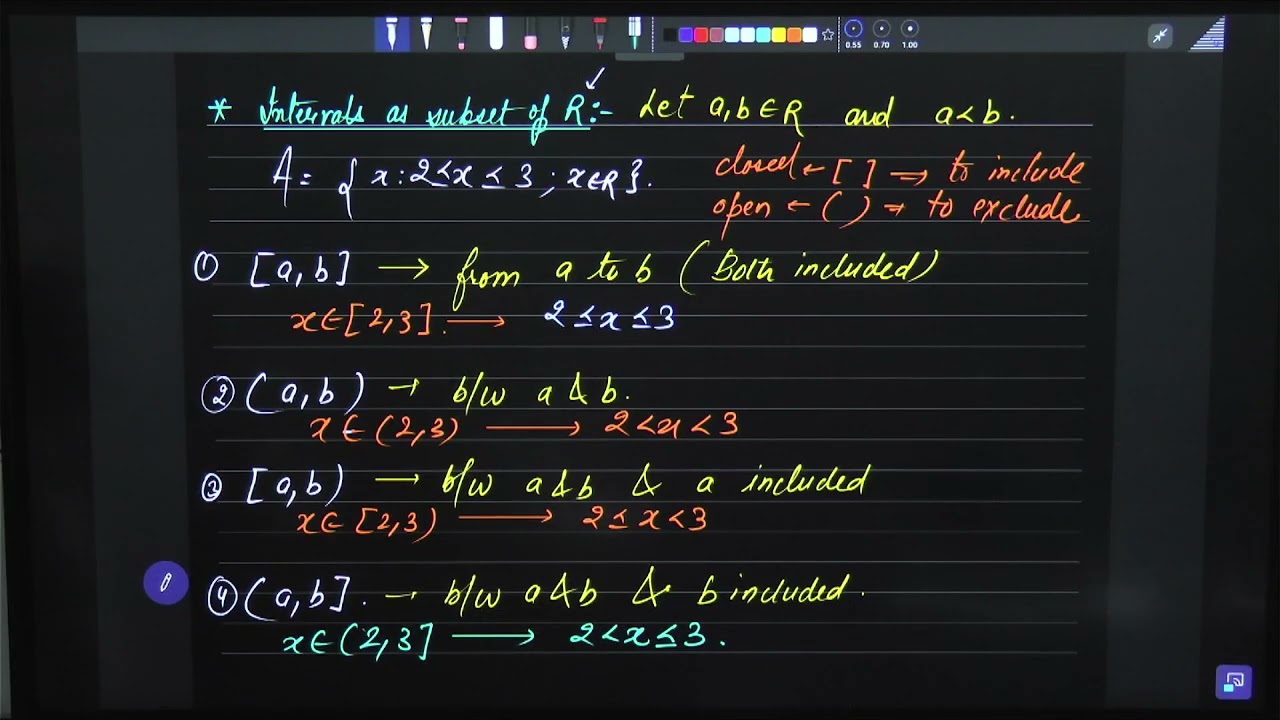 * Intervals as subset of R:- Let a,b∈R and a<b.
A = {x : 2≤x≤3 ; x∈R}.
closed ← [ ] ⇒ to include
open ← ( ) ⇒ to exclude
① [a,b] → from a to b (Both included)
x∈[2,3]. → 2≤x≤3
② (a,b) → b/w a & b.
x∈(2,3) → 2<x<3
③ [a,b) → b/w a & b & a included
x∈[2,3) → 2≤x<3
④ (a,b]. → b/w a & b & b included.
x∈(2,3] → 2<x≤3.
0.55 0.70 1.00